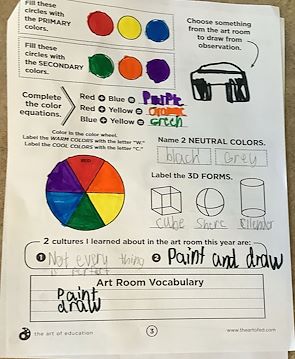 Fill these circles with the PRIMARY colors.
Choose something from the art room to draw from observation.
Fill these circles with the SECONDARY colors.
Complete the color equations.
Red + Blue = Purple
Red + Yellow = Orange
Blue + Yellow = Green
Color in the color wheel.
Label the WARM COLORS with the letter "W."
Label the COOL COLORS with the letter "C."
RED
Name 2 NEUTRAL COLORS.
black Grey
Label the 3D FORMS.
cube
2 cultures I learned about in the art room this year are:
1 Not every thing
2 Paint and draw
Art Room Vocabulary
Paint
draw
the art of education
3
www.theartofed.com